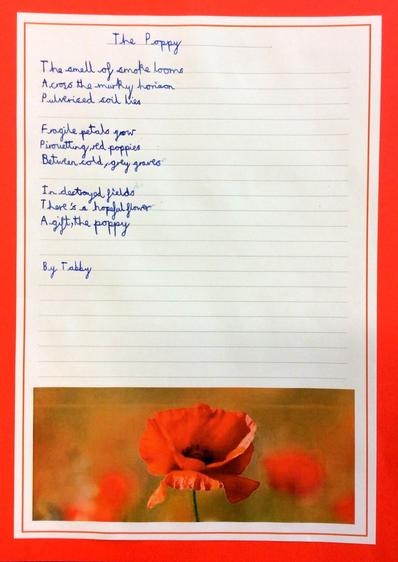 The Poppy
The smell of smoke looms
Across the murky horison
Pulverised soil lies
Fragile petals grow
Pirouetting, red poppies
Between cold, grey graves
In destroyed fields
There's a hopeful flower
A gift, the poppy
By Tabby